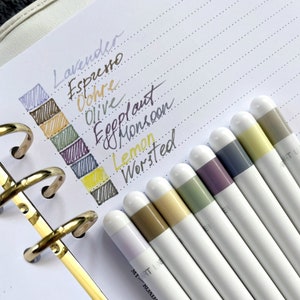 Lavender
Espresso
Ochre
Olive
Eggplant
Monsoon
Lemon
Worsted